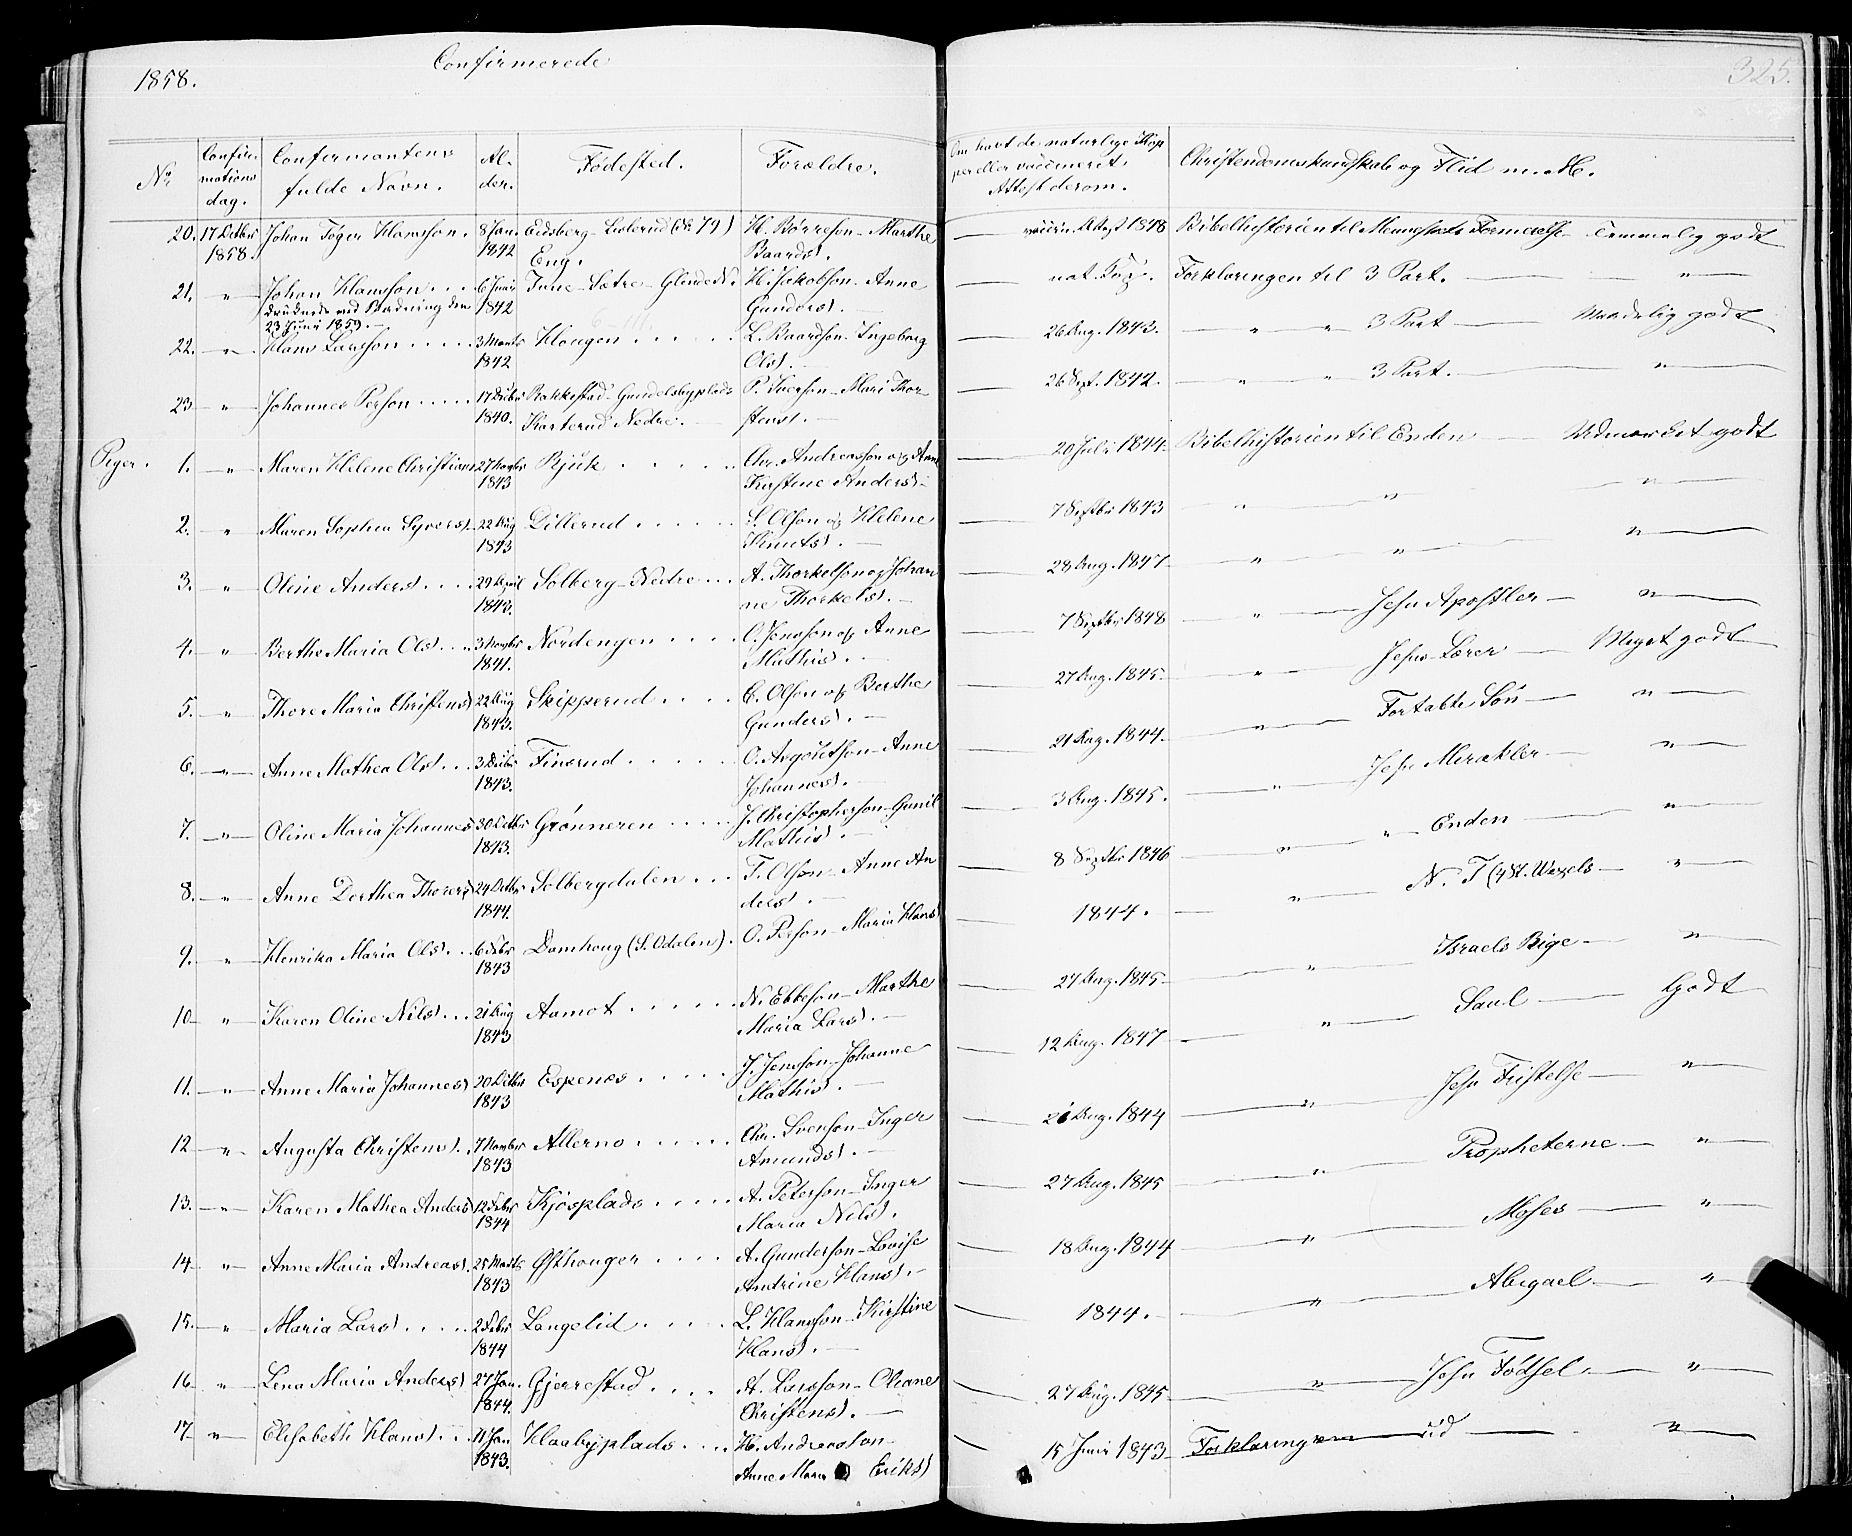 1858.
Confirmerede
325.
No
Confir-
mations
dag.
Confirmantens
fulde Navn.
Al-
der.
Fødested.
Forældre.
Om havt de naturlige Kop
per eller vaccineret.
Attest derom.
Christendomskundskab og Flid m. M.
20. 17 Octbr 1858. Johan Høger Hansson. 8 Jan. 1842 Eidsberg - Lislerud (No 79)
Eng.
H. Børreson - Marthe
Baardsd.
vaccin. Attest 1848 Bibelhistorien til Menneskets Fornærelse Temmelig godt
21. " Johan Hansson 6 Juni 1842 Tune - Sætre - Glende N.
druknede ved Badning den
23 Juni 1859.
H. Jakobson - Anne
Gundersd.
nat. Kop. Forklaringen til 3 Part. "
22. " Hans Larsson 3 Marts 1842 Haugen
L. Baardson - Ingeborg
Olsd.
26 Aug. 1843. " " 3 Part Maadelig godt
23 " Johannes Person 17 Decbr 1840. Rakkestad - Gundelsbyplads
Karterud Nedre.
P. Iverson - Mari Thor
stensd.
26 Sept. 1842. " " 3 Part. "
Piger. 1. " Maren Helene Christians 27 Novbr 1843 Kjuk
Chr. Andreasson og Anne
Kirstine Andersd
20 Juli 1844. Bibelhistorien til Enden Udmærket godt
2. " Maren Sophia Syversd 22 Aug 1843 Dillerud
S. Olson og Helene
Knutsd.
7 Septbr 1843 " " "
3. " Oline Andersd 29 April 1843. Solberg - Nedre
A. Thorkelson og Johan
ne Thorkelsd.
28 Aug. 1847 " " "
4. " Berthe Maria Olsd 3 Novbr 1841. Nordengen
O. Jensson og Anne
Mathisd.
7 Septbr 1848 " Jesu Apostler "
5. " Thore Maria Christensd 22 Aug 1843. Skipperud
C. Olson og Berthe
Gundersd.
27 Aug. 1845. " Jesu Lærer Meget godt
6. " Anne Mathea Olsd 3 Decbr 1843. Finsrud
O. Argoutson - Anne
Johannesd.
21 Aug. 1844. " Fortabte Søn "
7. " Oline Maria Johannesd 30 Octbr 1843. Grønneren
J. Christopherson - Gunil
Mathisd.
3 Aug. 1845. " Jesu Mirakler "
8. " Anne Dorthea Thoresd 24 Octbr 1844. Solbergdalen
T. Olson - Anne An
dersd.
8 Septbr 1846 " " Enden "
9. " Henrika Maria Olsd 6 Febr 1843 Damhoug (S. Odalen).
O. Person - Maria Hansd
1844. " N. T (4 St. Wexels "
10 " Karen Oline Nilsd 21 Aug 1843 Aamot
N. Ebbeson - Marthe
Maria Larsd.
27 Aug. 1845 " Israels Rige "
11. " Anne Maria Johannesd 20 Octbr 1843 Espenes
J. Jensson - Johanne
Mathisd.
12 Aug. 1847 " Saul Godt
12 " Augusta Christensd. 7 Novbr 1843 Allerno
Chr. Svenson - Inger
Amundsd.
21 Aug. 1844 " Jesu Fristelse "
13. " Karen Mathea Andersd 12 Febr 1844 Kjosplads
A. Peterson - Inger
Maria Nilsd.
27 Aug. 1845 " Propheterne "
14 " Anne Maria Andreasd. 25 Marts 1843 Østhouger
A. Gunderson - Lovise
Andrine Hansd.
18 Aug. 1844 " Moses "
15. " Maria Larsd 2 Febr 1844 Langelid
L. Hansson - Kirstine
Hansd.
1844. " Abigael "
16 " Lena Maria Andersd 27 Jan. 1844. Gjerrestad
A. Larsson - Oleane
Christensd.
27 Aug. 1845 " Jesu Fødsel "
17. " Elisabeth Hansd 11 Jan 1843. Haabyplads
H. Andreasson
Anne Maria Eriksd
15 Juni 1843 Forklaringen ud "